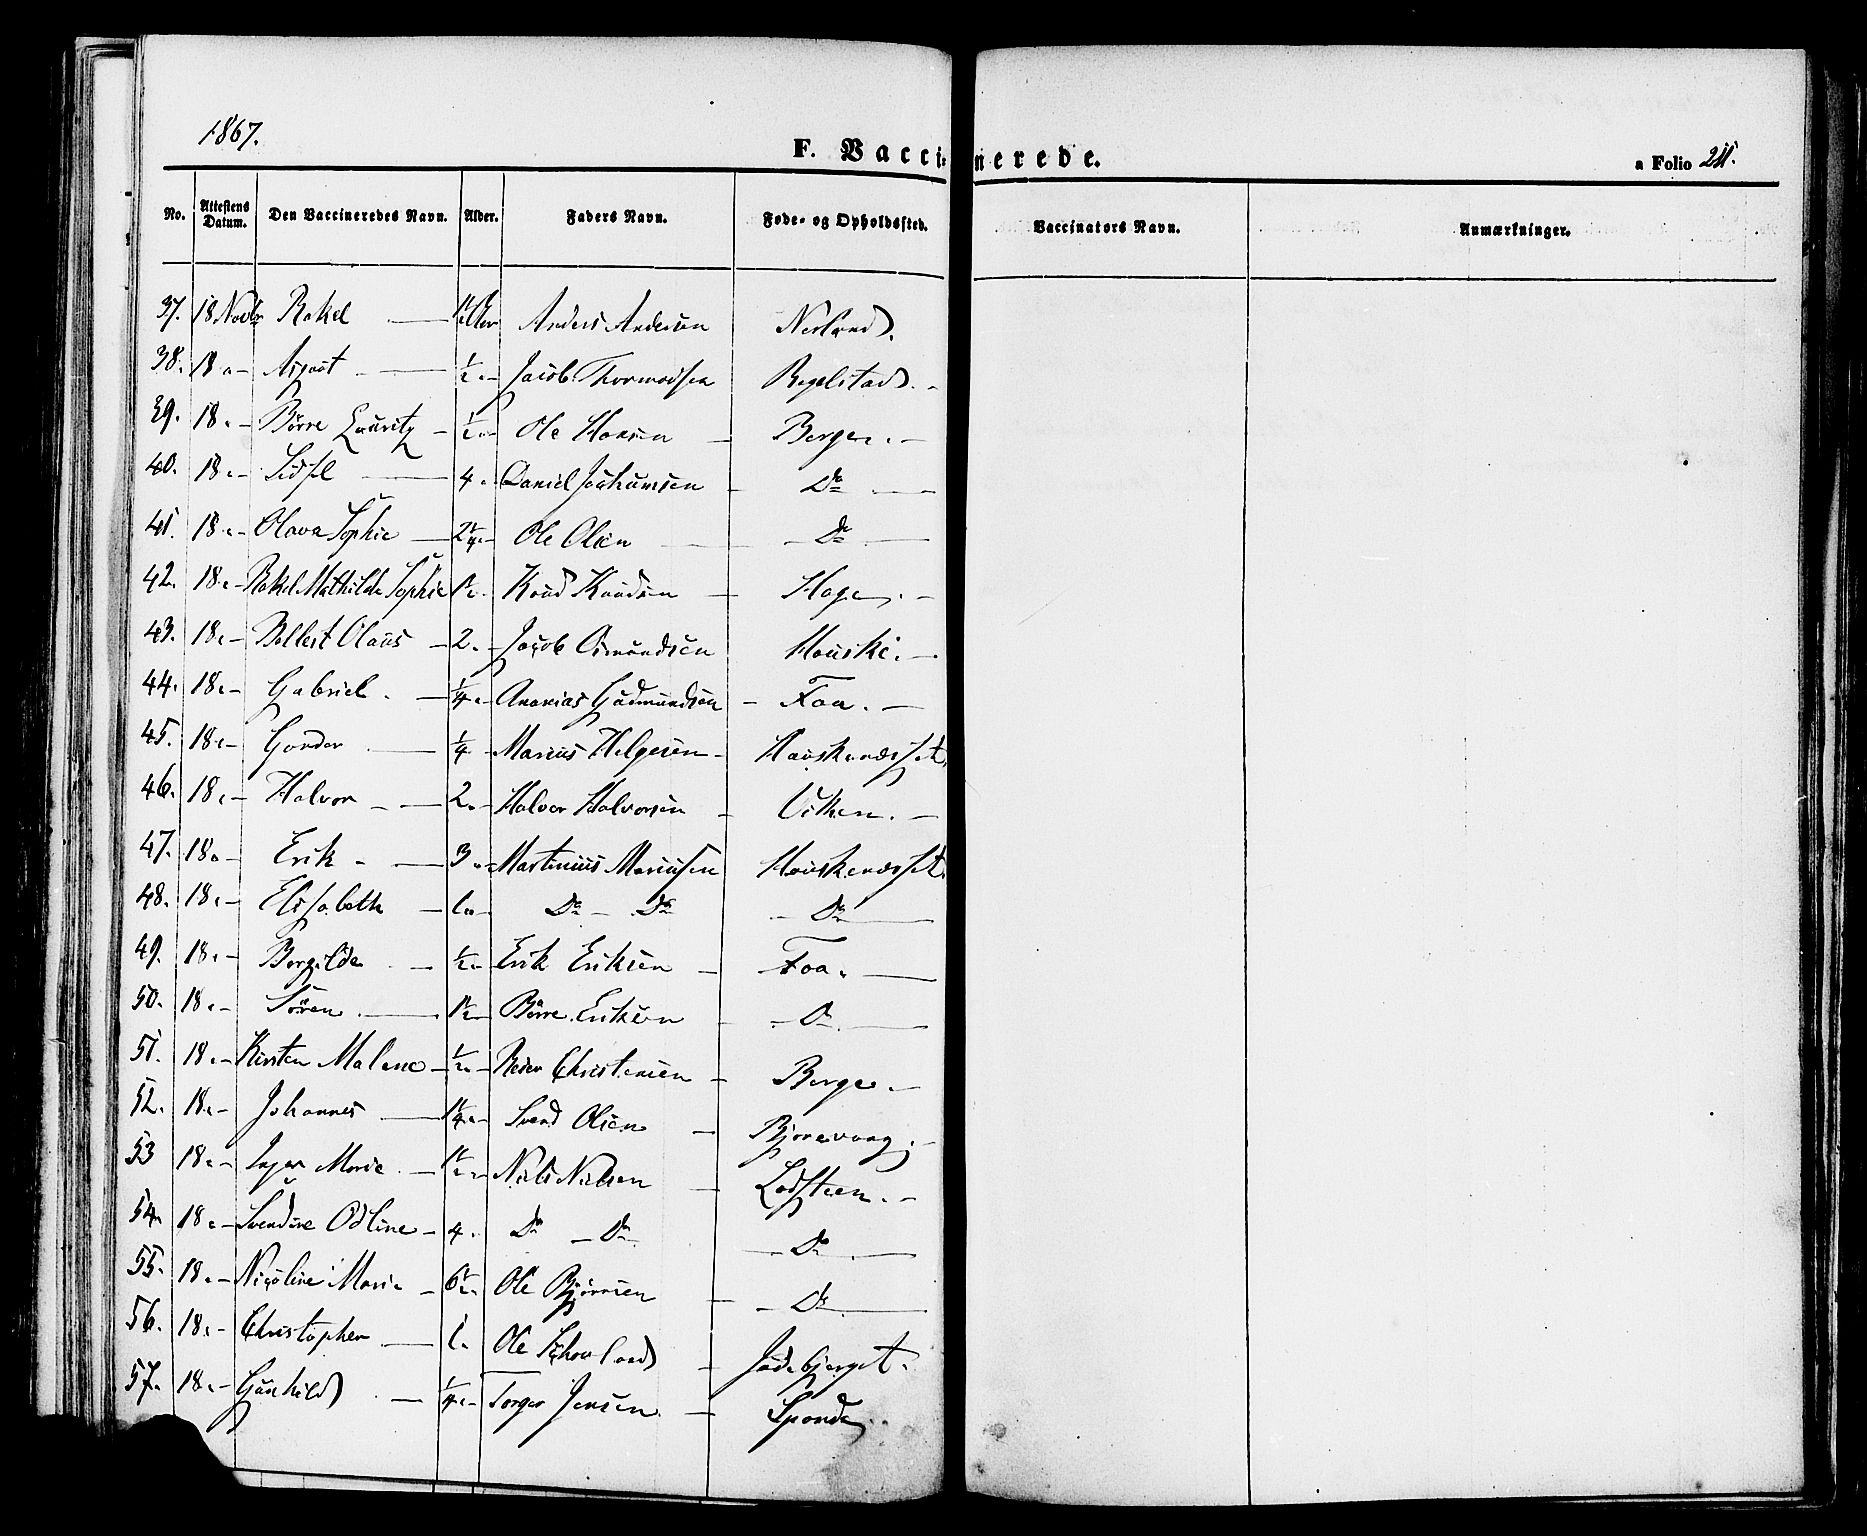 1867.
F. Vaccinerede.
a Folio 211.
No. Attestens Datum. Den Vaccineredes Navn. Alder. Faders Navn. Føde- og Opholdssted. Vaccinators Navn. Anmærkninger.
37. 18 Novbr Rakel — Anders Andersen Nesland.
38. 18 " – August — ½ " – Jacob Thormodsen Regelstad. –
39. 18 " – Börre Lauritz – ½ " – Ole Hansen – Berge. –
40. 18 " – Sidsel — 4 " Daniel Joahumsen – Do —
41. 18 " – Olava Sophie — 2¼ " – Ole Olsen — Do —
42. 18 " – Rakel Mathilde Sophie 1½ " Knud Knudsen – Hage. –
43. 18 " – Bellest Olaus – 2 " – Jacob Osmundsen Houske. –
44. 18 " – Gabriel. – ¼ " – Ananias Gudmundsen – Foa. –
45. 18 " – Gunder — ¼ " – Marius Helgesen – Houskenæsset
46. 18 " – Halvor – — 2 " – Halvor Halvorsen – Viken. –
47. 18 " – Erik – — 3 " – Martinius Mariusen Houskenæsset.
48. 18 " – Elisabeth – 1 " – Do – Do – Do —
49. 18 " – Bergilde – ½ " – Erik Eriksen – Foa. —
50. 18 " – Sören — 1½ " – Börre Eriksen – Do —
51. 18 " – Kirsten Malene – ½ " – Peder Christensen – Berge. –
52. 18 " – Johannes — 1¼ " – Svend Olsen – Bjorevaag. –
53 18 " – Inger Marie. – 1½ " – Niels Nielsen – Lodsteen. –
54. 18 " – Svendine Odline – 4 " Do – Do – Do —
55. 18 " – Nicoline Marie – 6½ " Ole Björnsen – – Do —
56. 18 " – Christopher — 1 " Ole Schouland – Jödebjerget.
57. 18 " – Gunhild – ¼ " – Torger Jensen – Sponde.